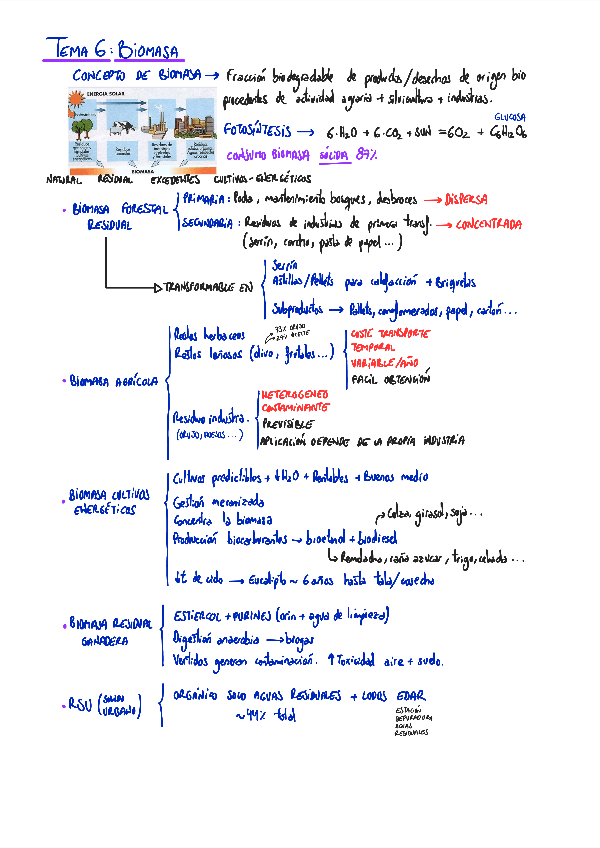 TEMA 6: BIOMASA
CONCEPTO DE BIOMASA → Fracción biodegradable de productos/desechos de origen bio
procedentes de actividad agraria + silvicultura + industrias.
ENERGÍA SOLAR
BIOMASA
GLUCOSA
FOTOSÍNTESIS → 6·H2O + 6·CO2 + SUN = 6O2 + C6H12O6
CONSUMO BIOMASA SÓLIDA 87%
NATURAL RESIDUAL EXCEDENTES CULTIVOS-ENERGÉTICOS
• BIOMASA FORESTAL RESIDUAL
PRIMARIA: Poda, mantenimiento bosques, desbroces → DISPERSA
SECUNDARIA: Residuos de industrias de primera transf. → CONCENTRADA
(serrín, corcho, pasta de papel...)
TRANSFORMABLE EN
Serrín
Astillas/Pellets para calefacción + Briquetas
Subproductos → Pallets, conglomerados, papel, cartón...
• BIOMASA AGRÍCOLA
Restos herbaceos
Restos leñosos (olivo, frutales...)
COSTE TRANSPORTE
TEMPORAL
VARIABLE/AÑO
FACIL OBTENCIÓN
Residuo industria.
(ORUJO, HUESOS...)
HETEROGENEO
CONTAMINANTE
PREVISIBLE
APLICACIÓN DEPENDE DE LA PROPIA INDUSTRIA
• BIOMASA CULTIVOS ENERGÉTICOS
Cultivos predictibles + ↓H2O + Rentables + Buenos medio
Gestión mecanizada
Concentra la biomasa
Colza, girasol, soja...
Producción biocarburantes → bioetanol + biodiesel
Remolacha, caña azucar, trigo, cebada...
↓t de ciclo → Eucalipto ~ 6 años hasta tala/cosecha
• BIOMASA RESIDUAL GANADERA
ESTIERCOL + PURINES (orin + agua de limpieza)
Digestión anaerobia → biogas
Vertidos generan contaminación. ↑ Toxicidad aire + suelo.
• RSU (SOLIDO URBANO)
ORGÁNICO SOLO AGUAS RESIDUALES + LODOS EDAR
~44% total
ESTACIÓN
DEPURADORA
AGUAS
RESIDUALES